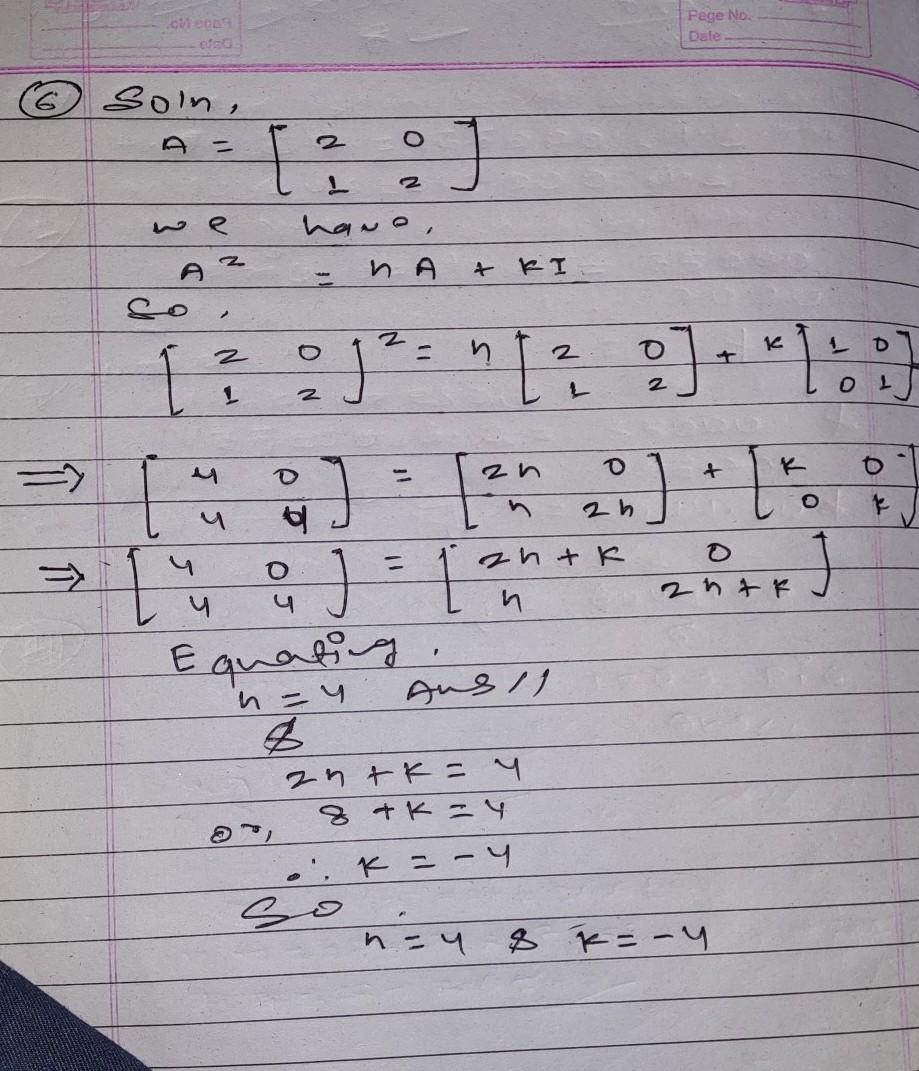 Page No.
Date
6 Soln,
A = [ 2 0
1 2 ]
we have,
A² = nA + kI
So,
[ 2 0
1 2 ]² = n [ 2 0
1 2 ] + k [ 1 0
0 1 ]
⇒ [ 4 0
4 4 ] = [ 2n 0
n 2n ] + [ k 0
0 k ]
⇒ [ 4 0
4 4 ] = [ 2n + k 0
n 2n + k ]
Equating,
n = 4 Ans //
&
2n + k = 4
or, 8 + k = 4
∴ k = -4
So,
n = 4 & k = -4